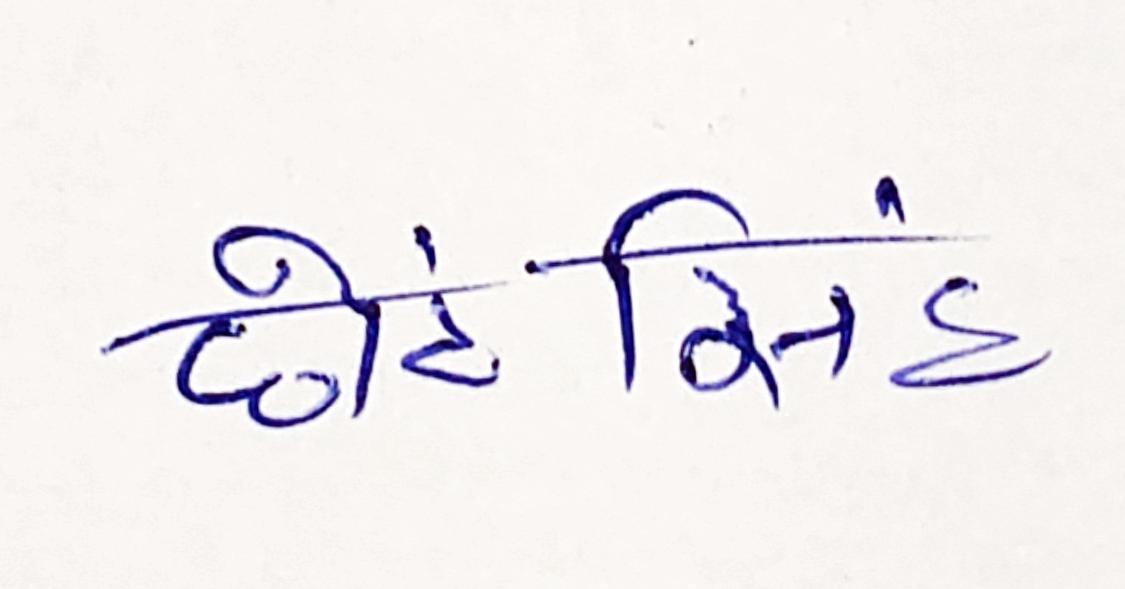 छोटे सिंह